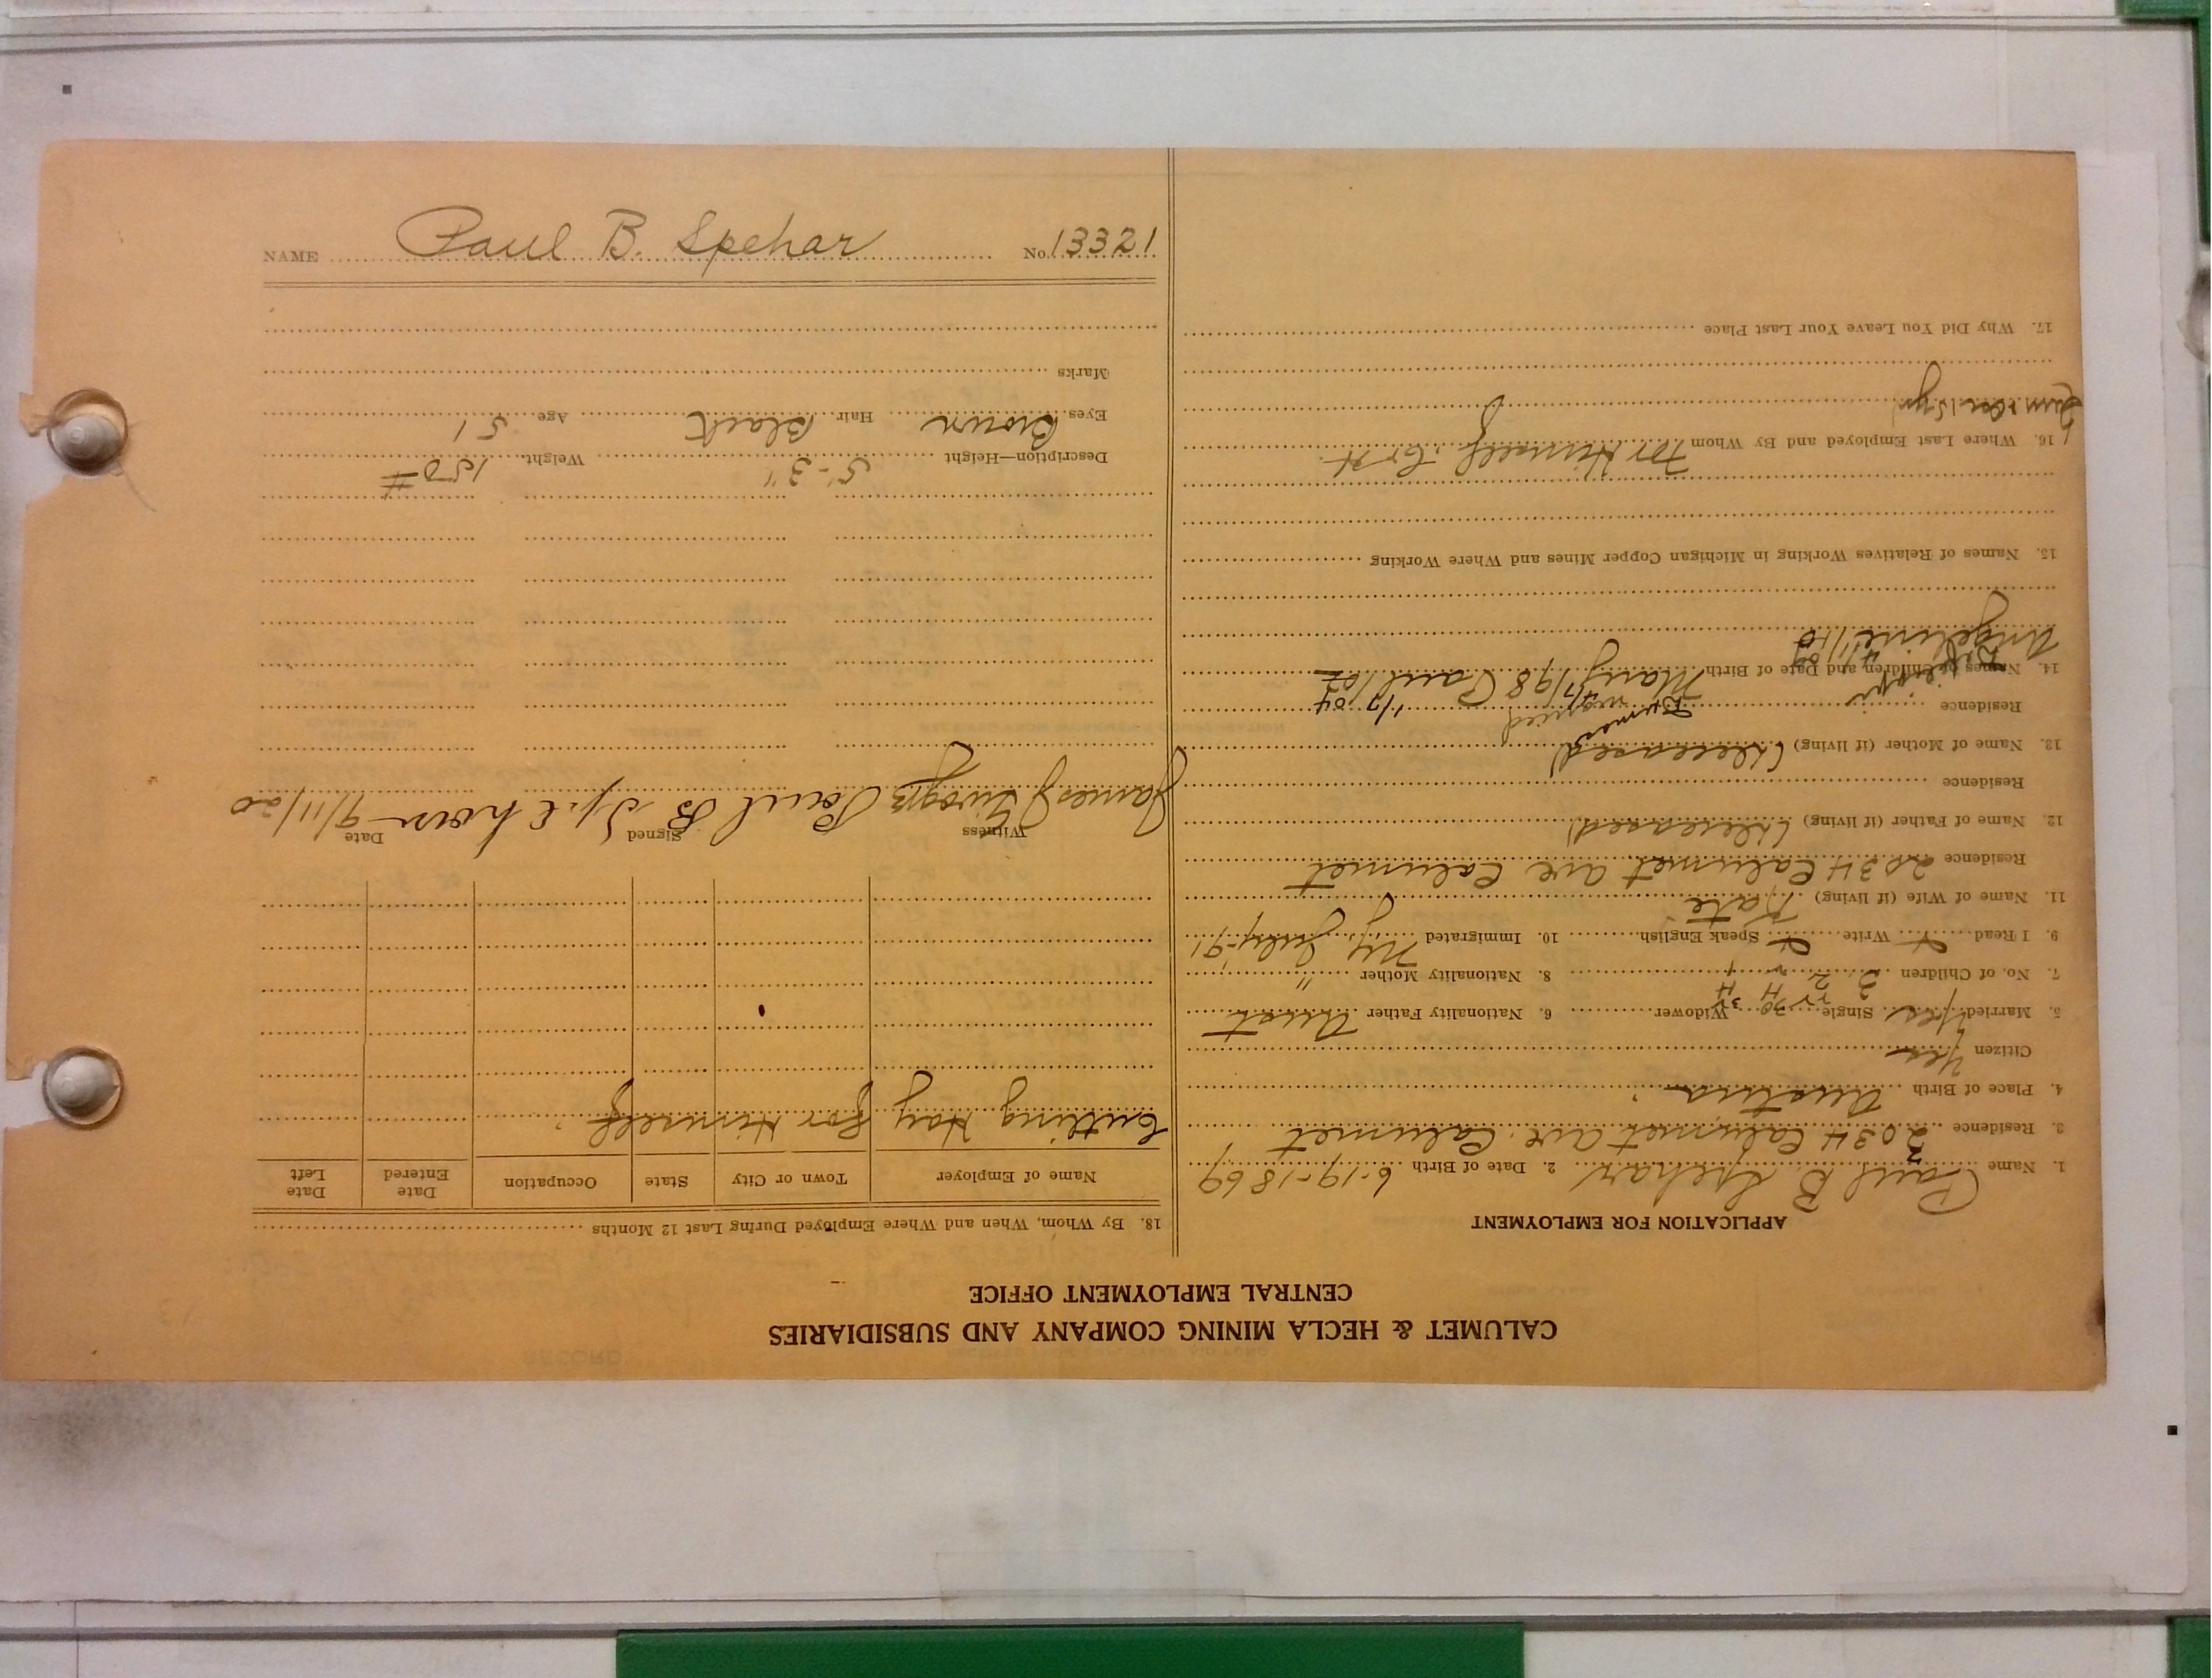 NAME Paul B. Spehar No. 13321
CALUMET & HECLA MINING COMPANY AND SUBSIDIARIES
CENTRAL EMPLOYMENT OFFICE
APPLICATION FOR EMPLOYMENT
1. Name Paul B. Spehar 2. Date of Birth 6-19-1869
3. Residence 2034 Calumet ave. Calumet
4. Place of Birth Austria
Citizen Yes
5. Married Yes Single Widower 6. Nationality Father Aust
7. No. of Children 8. Nationality Mother "
9. I Read Write Speak English 10. Immigrated NY July-91
11. Name of Wife (if living) Kate
Residence 2034 Calumet ave Calumet
12. Name of Father (if living) (deceased)
Residence
13. Name of Mother (if living) (deceased)
Residence
14. Names of Children and Date of Birth Mary 98 Paul
Angeline
15. Names of Relatives Working in Michigan Copper Mines and Where Working
16. Where Last Employed and By Whom For Himself
17. Why Did You Leave Your Last Place
18. By Whom, When and Where Employed During Last 12 Months
Name of Employer Town or City State Occupation Date Entered Date Left
Cutting Hay for Himself
Witness Signed Date
James Paul B 9/11/20
Description—Height 5'-3" Weight 150#
Eyes Brown Hair Black Age 51
Marks